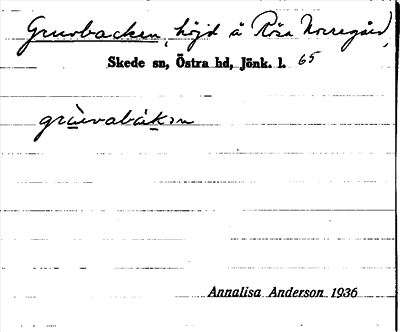 Gruvbacken, höjd å Rösa Norregård,
Skede sn, Östra hd, Jönk. l. 65
grùvabàkən
Annalisa Anderson 1936